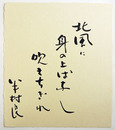 北風に
身の上ばなし
吹きちぎれ
半村良